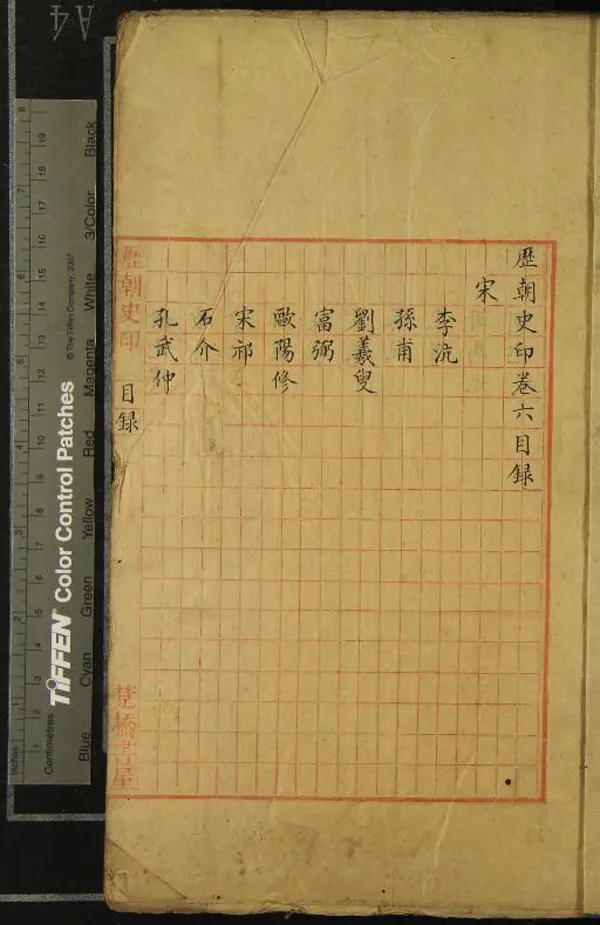 歷朝史印卷六目録
宋
李沆
孫甫
劉羲叟
富弼
歐陽修
宋祁
石介
孔武仲
歷朝史印
目録
楚橋書屋
A4
Inches
Centimetres
TIFFEN Color Control Patches
© The Tiffen Company, 2007
Blue
Cyan
Green
Yellow
Red
Magenta
White
3/Color
Black
1
2
3
4
5
6
7
8
9
10
11
12
13
14
15
16
17
18
19